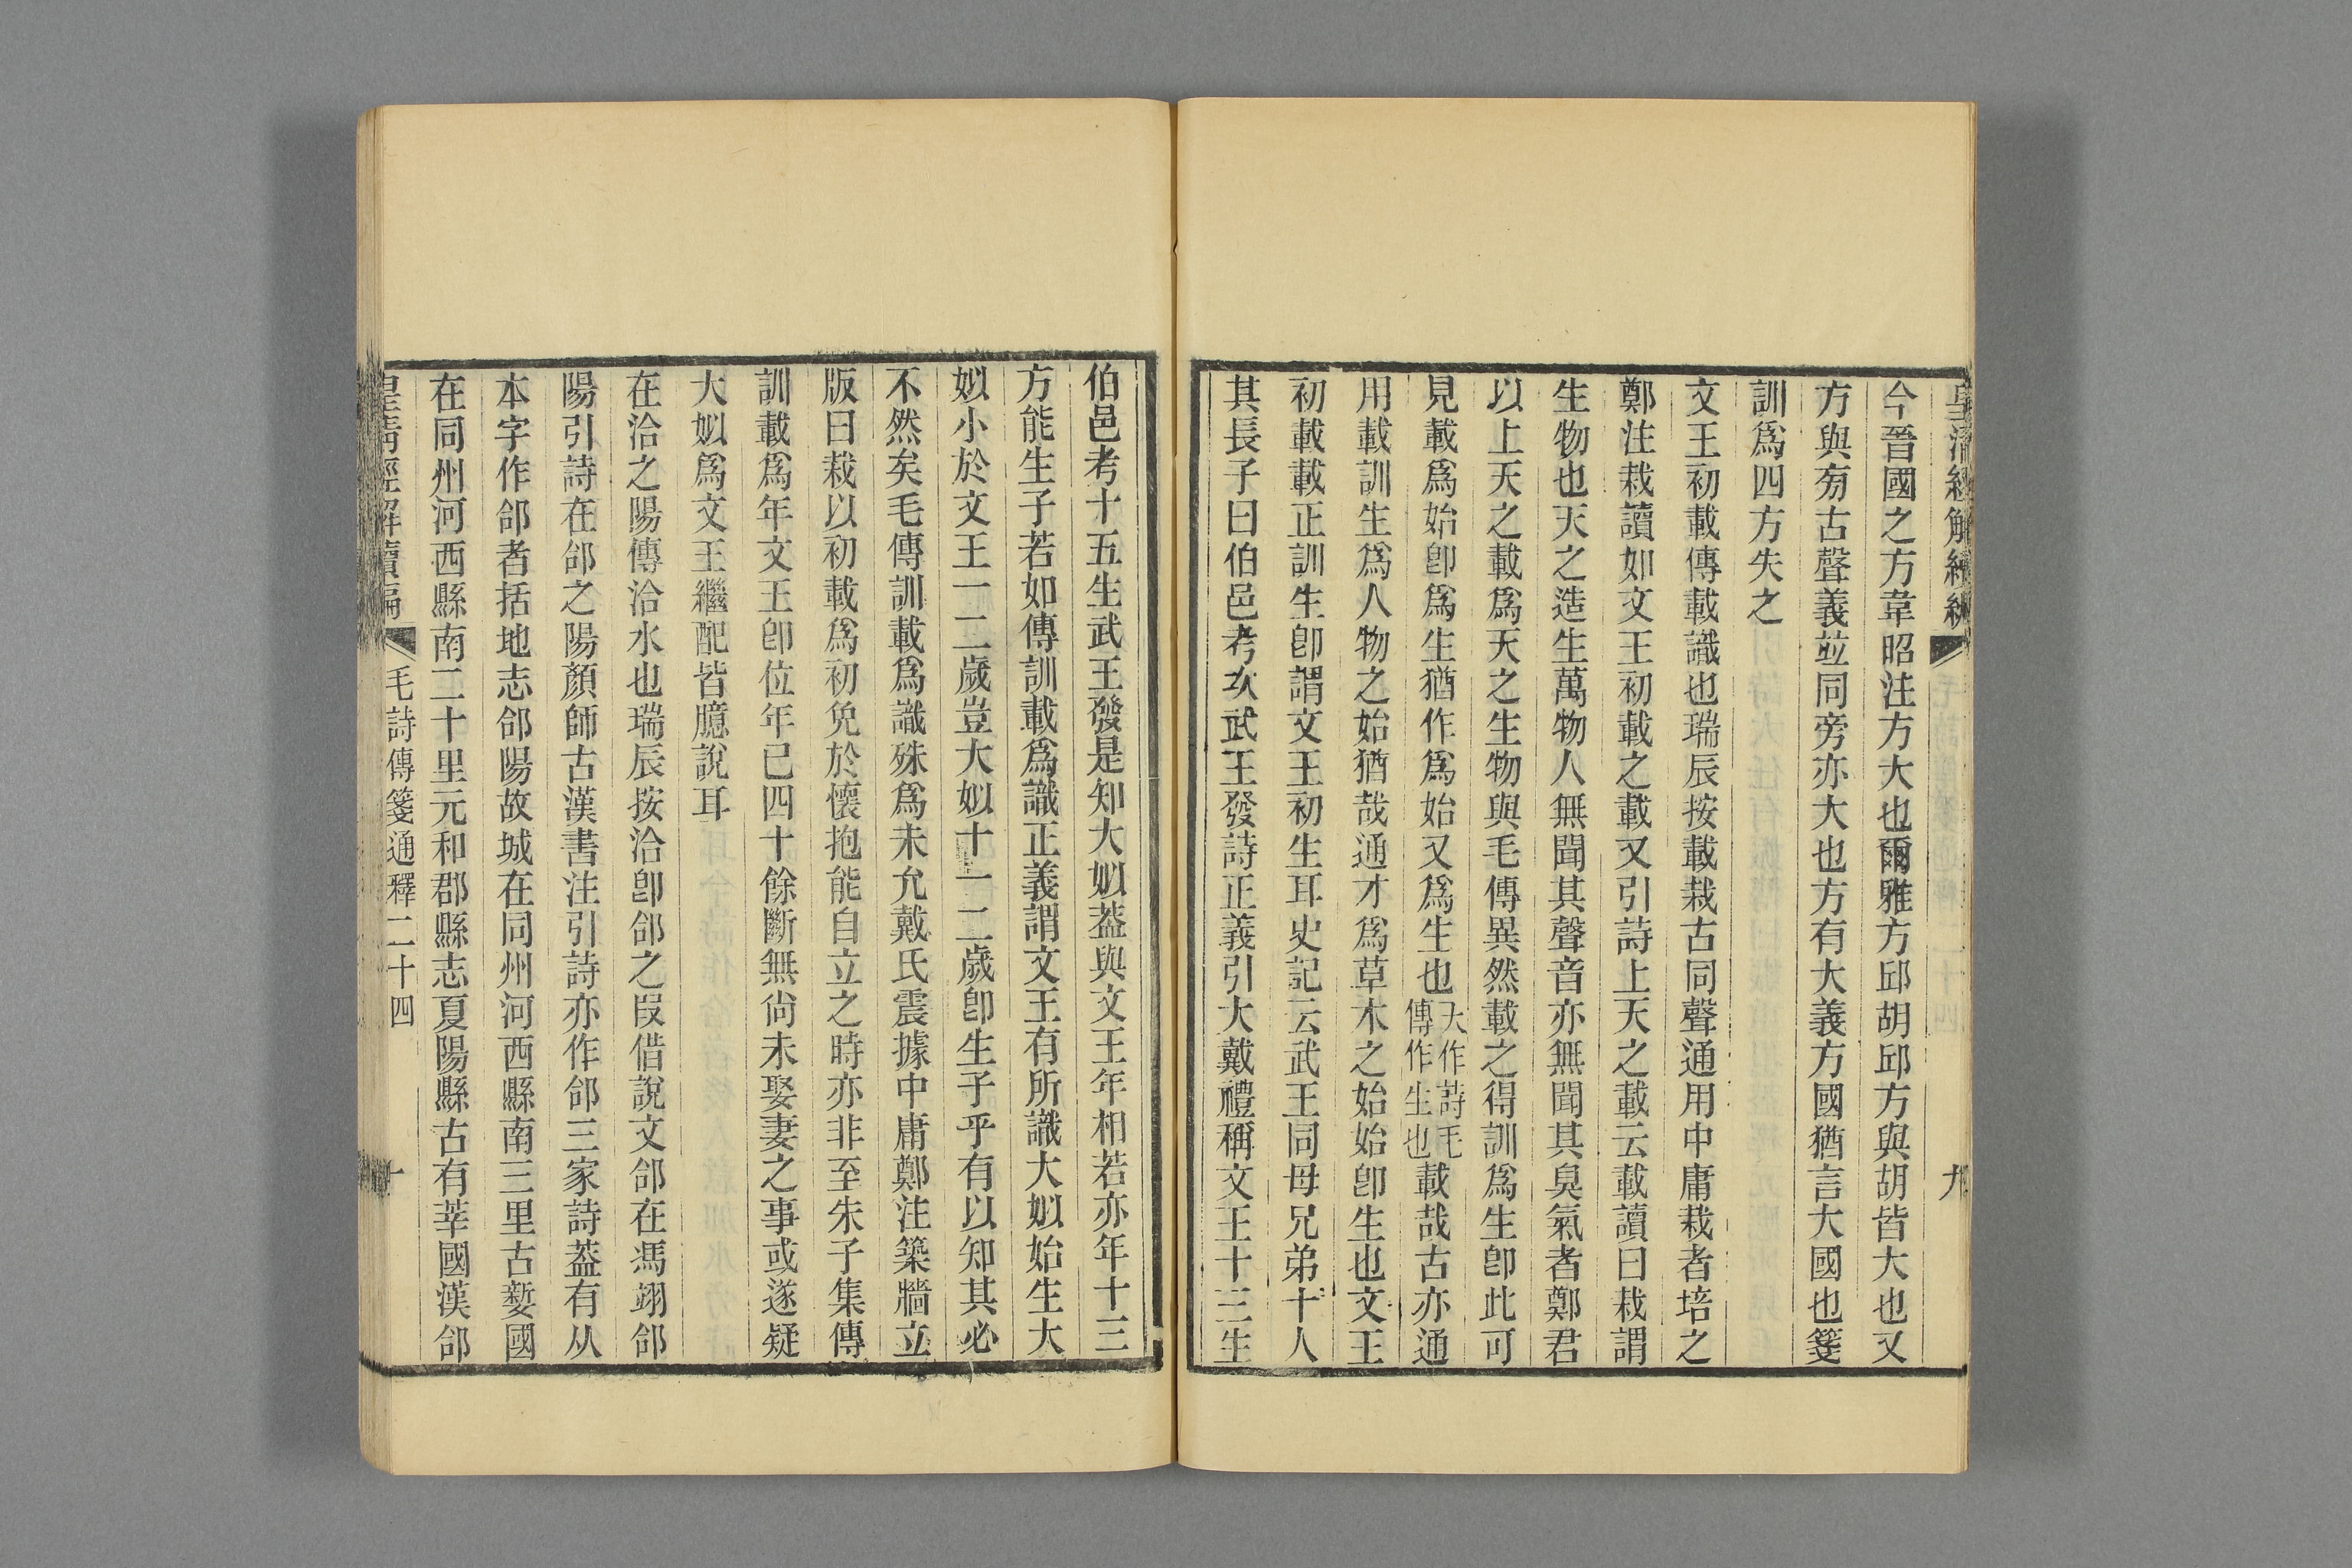 皇清經解續編
九
今晉國之方韋昭注方大也爾雅方邱胡邱方與胡皆大也又
方與㫄古聲義竝同旁亦大也方有大義方國猶言大國也箋
訓爲四方失之
文王初載傳載識也瑞辰按載栽古同聲通用中庸栽者培之
鄭注栽讀如文王初載之載又引詩上天之載云載讀曰栽謂
生物也天之造生萬物人無聞其聲音亦無聞其臭氣者鄭君
以上天之載爲天之生物與毛傳異然載之得訓爲生卽此可
見載爲始卽爲生猶作爲始又爲生也天作詩毛傳作生也載哉古亦通
用載訓生爲人物之始猶哉通才爲草木之始始卽生也文王
初載載正訓生卽謂文王初生耳史記云武王同母兄弟十人
其長子曰伯邑考次武王發詩正義引大戴禮稱文王十三生
伯邑考十五生武王發是知大姒葢與文王年相若亦年十三
方能生子若如傳訓載爲識正義謂文王有所識大姒始生大
姒小於文王一二歲豈大姒十一二歲卽生子乎有以知其必
不然矣毛傳訓載爲識殊爲未允戴氏震據中庸鄭注築牆立
版曰栽以初載爲初免於懷抱能自立之時亦非至朱子集傳
訓載爲年文王卽位年已四十餘斷無尙未娶妻之事或遂疑
大姒爲文王繼配皆臆說耳
在洽之陽傳洽水也瑞辰按洽卽郃之叚借說文郃在馮翊郃
陽引詩在郃之陽顏師古漢書注引詩亦作郃三家詩葢有从
本字作郃者括地志郃陽故城在同州河西縣南三里古㜪國
在同州河西縣南二十里元和郡縣志夏陽縣古有莘國漢郃
皇清經解續編
毛詩傳箋通釋二十四
十